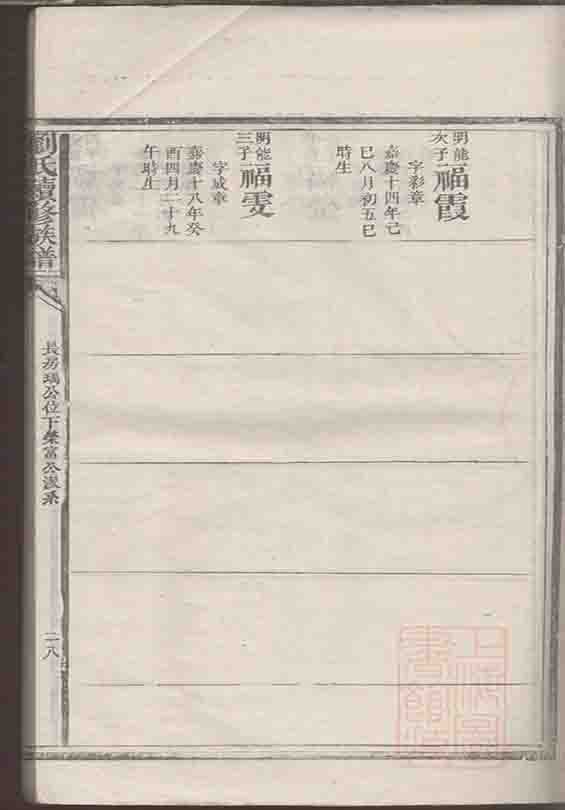 明能
次子
福霞
字彩章
嘉慶十四年己
巳八月初五巳
時生
明能
三子
福雯
字成章
嘉慶十八年癸
酉四月二十九
午時生
劉氏續修族譜
長房瑀公位下榮富公派系
二八